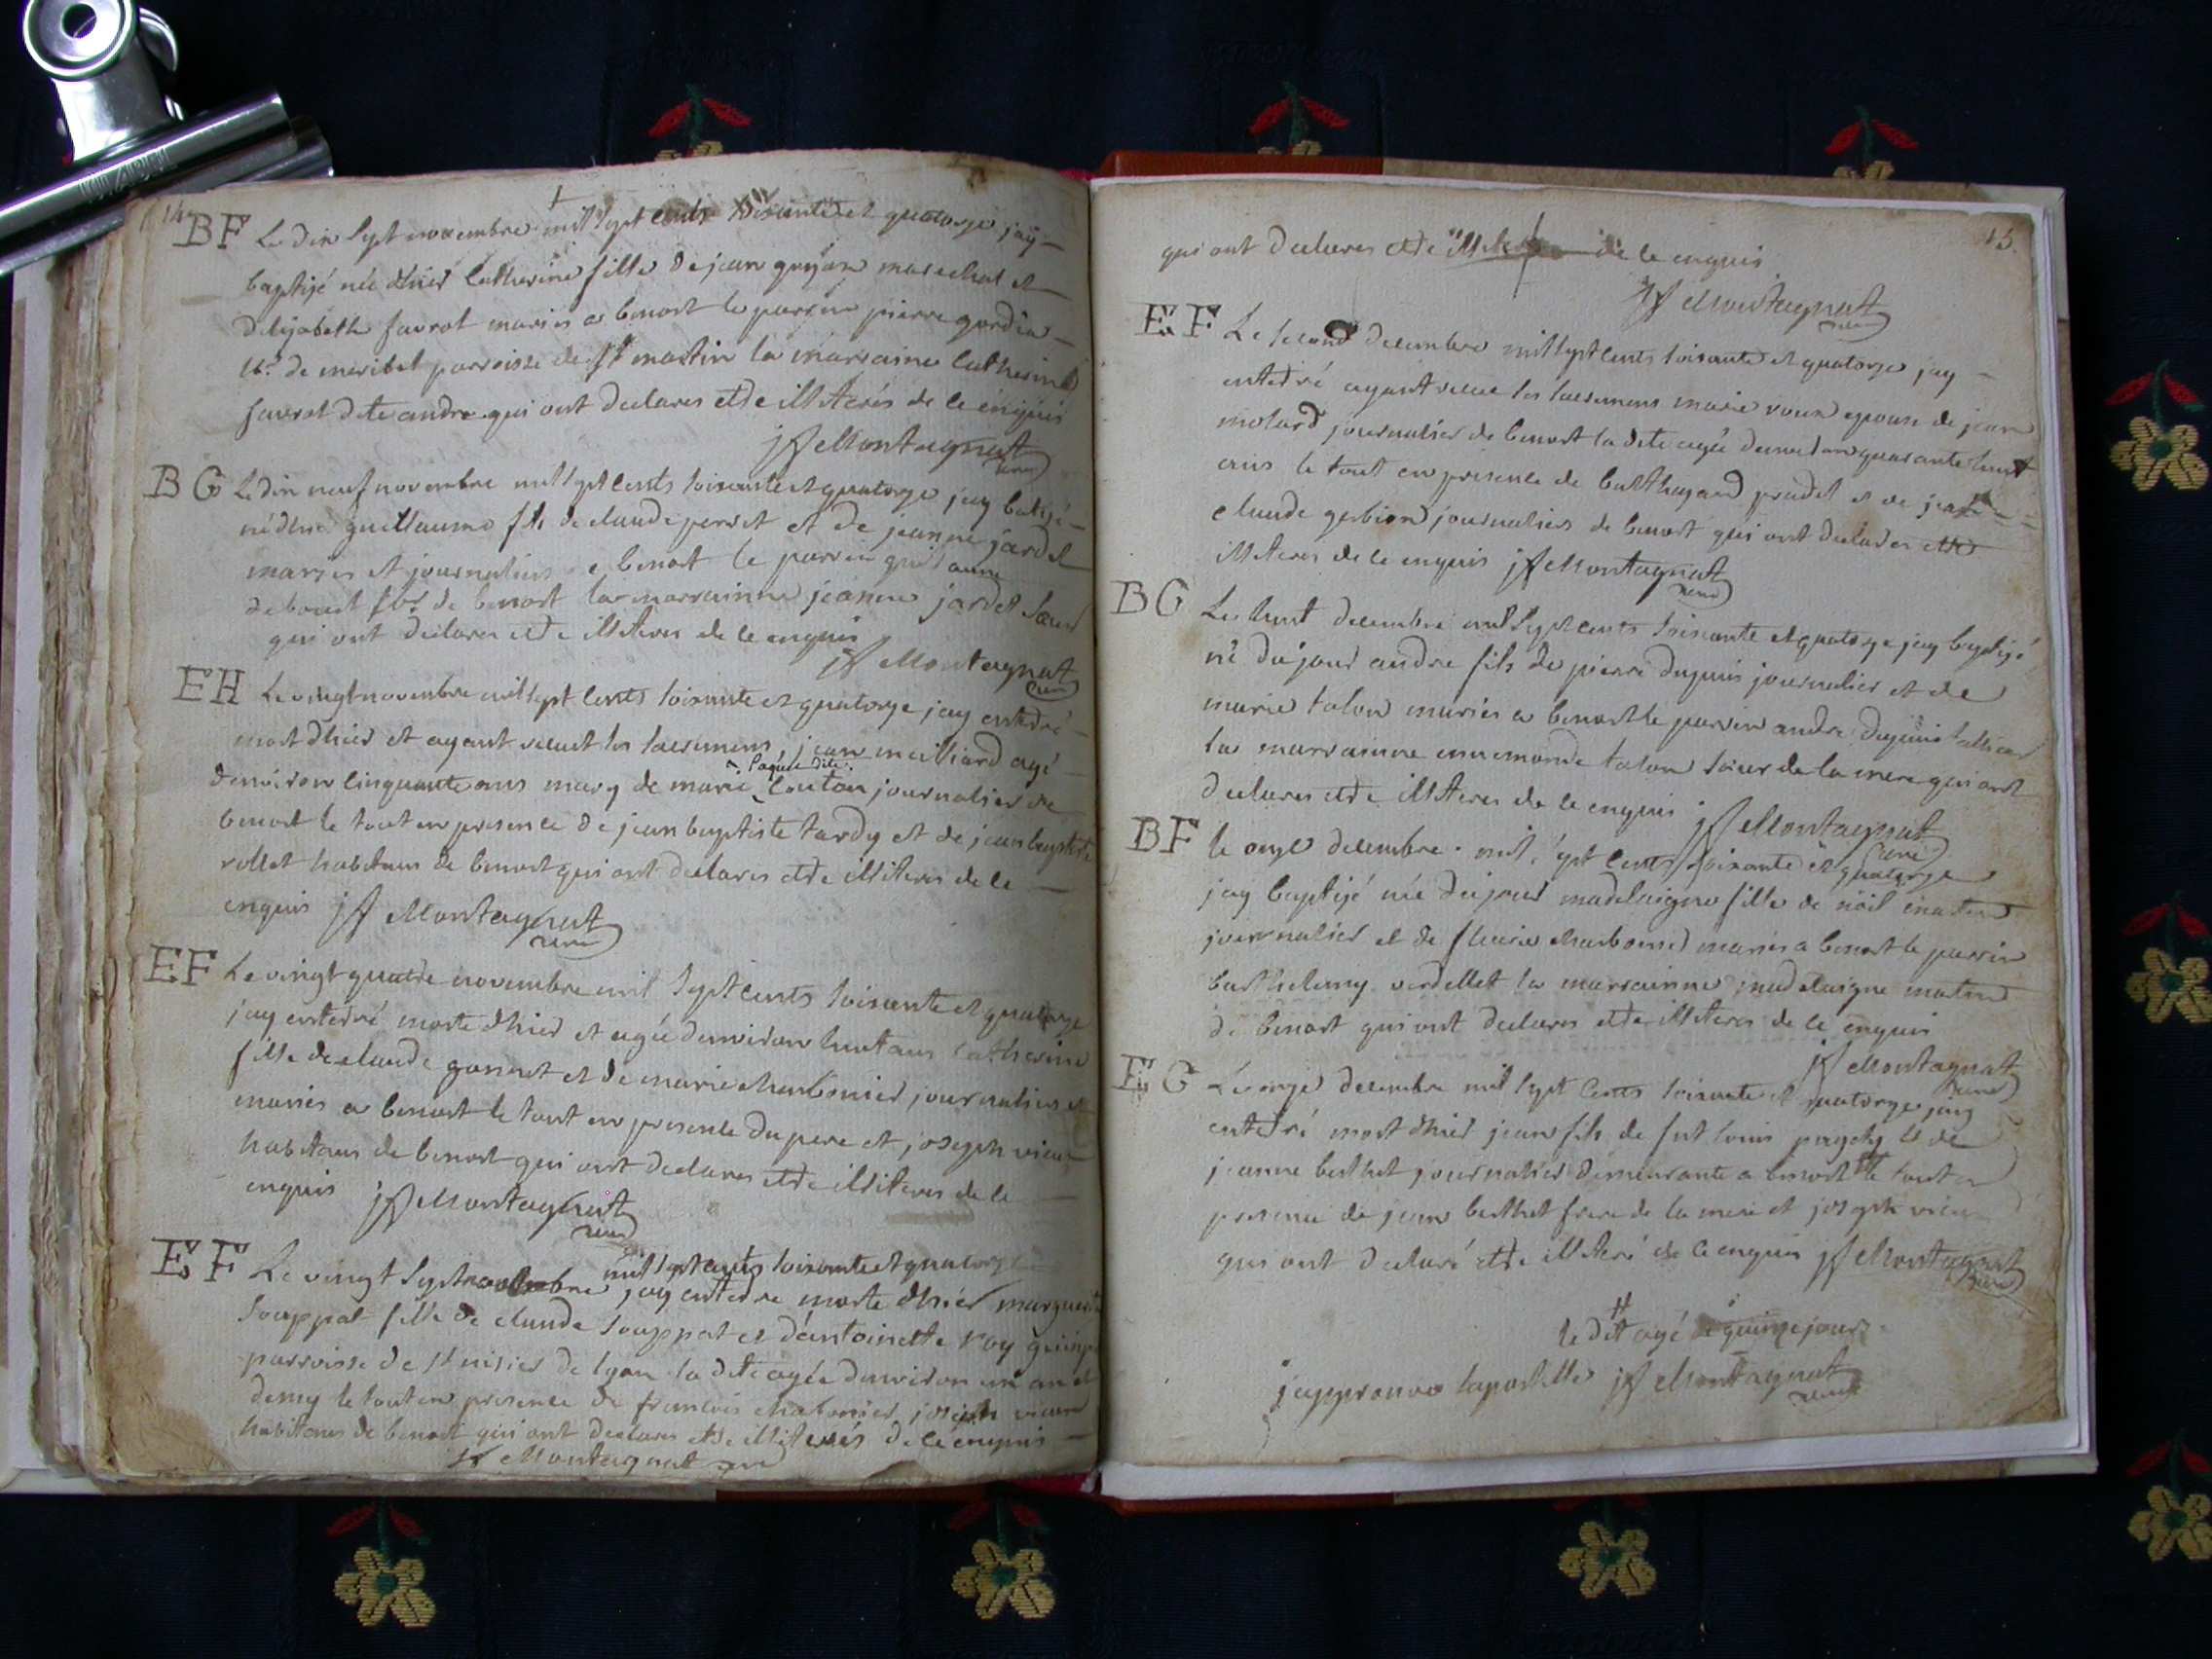 14
BF Le dix sept novembre mil sept cents soisante et quatorze jay
baptizé née d'hier Catherine fille de jean guyon marechal et
delizabeth favrot mariés a benost le parrin pierre gordin
de meribel parroisse de st martin la marraine Catherine
favrot dite andre qui ont declares etre illiterés de ce enquis
jf Montagnat curé
BG Le dix neuf novembre mil sept cents soisante et quatorze jay batizé
né dhier guillaume fils de claude perret et de jeanne jardet
mariés et journaliers a benost le parrin guillaume
de benost la marrainne jeanne jardet
qui ont declares etre illiteres de ce enquis
jf Montagnat curé
EH Le vingt novembre mil sept cents soisante et quatorze jay enterré
mort dhier et ayant receut les sacremens, jean meilliard agé
denviron cinquante ans mary de marie couton journalier de
benost le tout en presence de jean baptiste tardy et de jean baptiste
rollet habitans de benost qui ont declares etre illiteres de ce
enquis jf Montagnat curé
EF Le vingt quatre novembre mil sept cents soisante et quatorze
jay enterré morte dhier et agée denviron huit ans catherine
fille de claude gonnet et de marie charbonnier journaliers et
mariés a benost le tout en presence du pere et joseph vieux
habitans de benost qui ont declares etre illiteres de ce
enquis jf Montagnat curé
EF Le vingt sept novembre mil sept cents soisante et quatorze
jay enterre morte dhier marguerite
souppat fille de claude souppat et d'antoinette roy
parroisse de st nisier de lyon la dite agée denviron un an et
demy le tout en presence de francois charbonier joseph vieux
habitans de benost qui ont declares etre illiterés de ce enquis
jf Montagnat curé
15.
qui ont declares etre de ce enquis
jf Montagnat curé
EF Le second decembre mil sept cents soisante et quatorze jay
enterré ayant receue les sacremens marie roux epouse de jean
molard journalier de benost la dite agée denviron quarante huit
ans le tout en presence de pradel et de jean
claude gerbion journaliers de benost qui ont declares etre
illiteres de ce enquis jf Montagnat curé
BG Le huit decembre mil sept cents soisante et quatorze jay baptizé
né du jour andre fils de pierre dupuis journalier et de
marie talon mariés a benost le parrin andre dupuis
la marrainne ennemonde talon soeur de la mere qui ont
declares etre illiteres de ce enquis jf Montagnat curé
BF le onze decembre mil sept cents soisante et quatorze
jay baptizé née du jour madelaigne fille de noël
journalier et de charbonnier mariés a benost le parrin
barthelemy verdellet la marrainne madelaigne matin
de benost qui ont declares etre illiteres de ce enquis
jf Montagnat curé
EG Le onze decembre mil sept cents soisante et quatorze jay
enterré mort dhier jean fils de fut louis et de
jeanne berthet journalier demeurante a benost # le tout en
presence de jean berthet frere de la mere et joseph vieux
qui ont declaré etre illiteré de ce enquis jf Montagnat curé
#
le dit agé de quinze jours
japprouve lapostille jf Montagnat curé